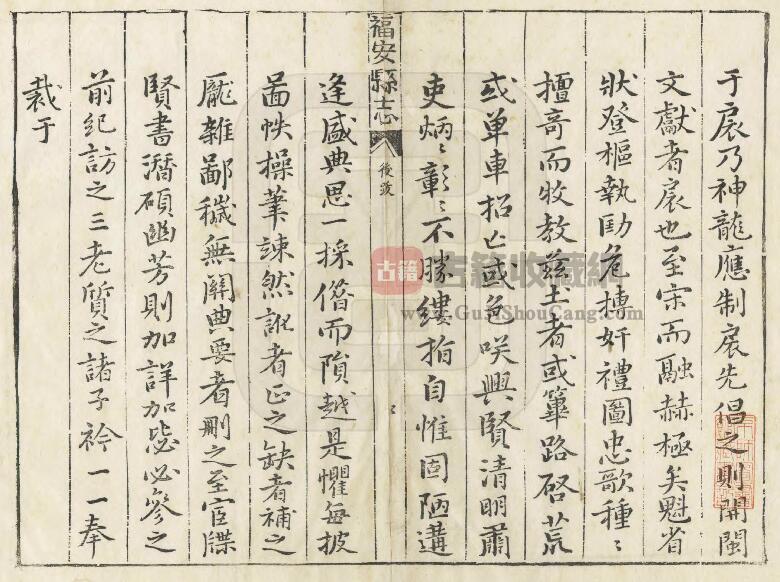 于宸乃神龍應制宸先倡之則開閩
文獻者宸也至宋而融赫極矣魁省
狀登樞執勛危摶奸禮圖忠歌種〻
擅奇而牧教茲土者或篳路啓荒
或單車招亡或色咲興賢清明肅
吏炳〻彰〻不勝縷指自惟固陋遘
福安縣志
後跋
二
逢盛典思一採僭而隕越是懼每披
啚帙操筆竦然訛者正之缺者補之
厖雜鄙穢無關典要者刪之至宦牒
賢書潛碩幽芳則加詳加毖必參之
前紀訪之三老質之諸子衿一一奉
裁于
古籍
古籍收藏網
www.GuJiShouCang.com